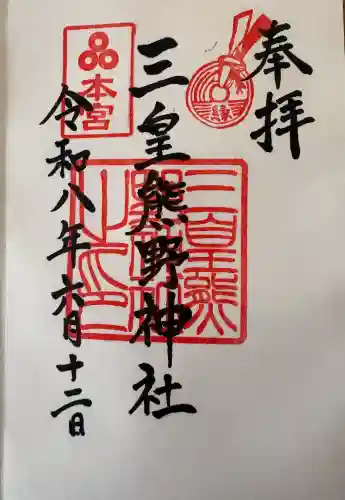 奉拝
縁
三皇熊野神社
三皇熊
野神社
之印
本宮
令和八年六月十二日